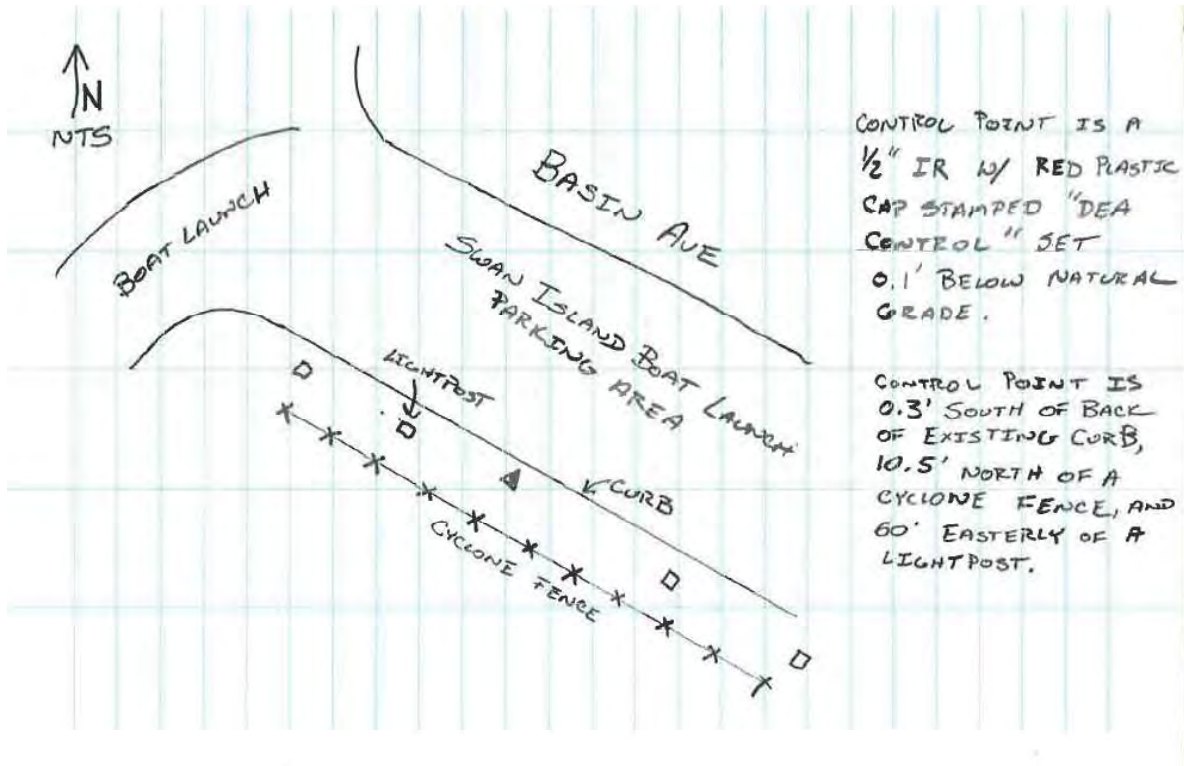 N
NTS
BASIN AVE
BOAT LAUNCH
SWAN ISLAND BOAT LAUNCH
PARKING AREA
LIGHTPOST
CURB
CYCLONE FENCE
CONTROL POINT IS A
1/2" IR W/ RED PLASTIC
CAP STAMPED "DEA
CONTROL" SET
0.1' BELOW NATURAL
GRADE.
CONTROL POINT IS
0.3' SOUTH OF BACK
OF EXISTING CURB,
10.5' NORTH OF A
CYCLONE FENCE, AND
60' EASTERLY OF A
LIGHTPOST.